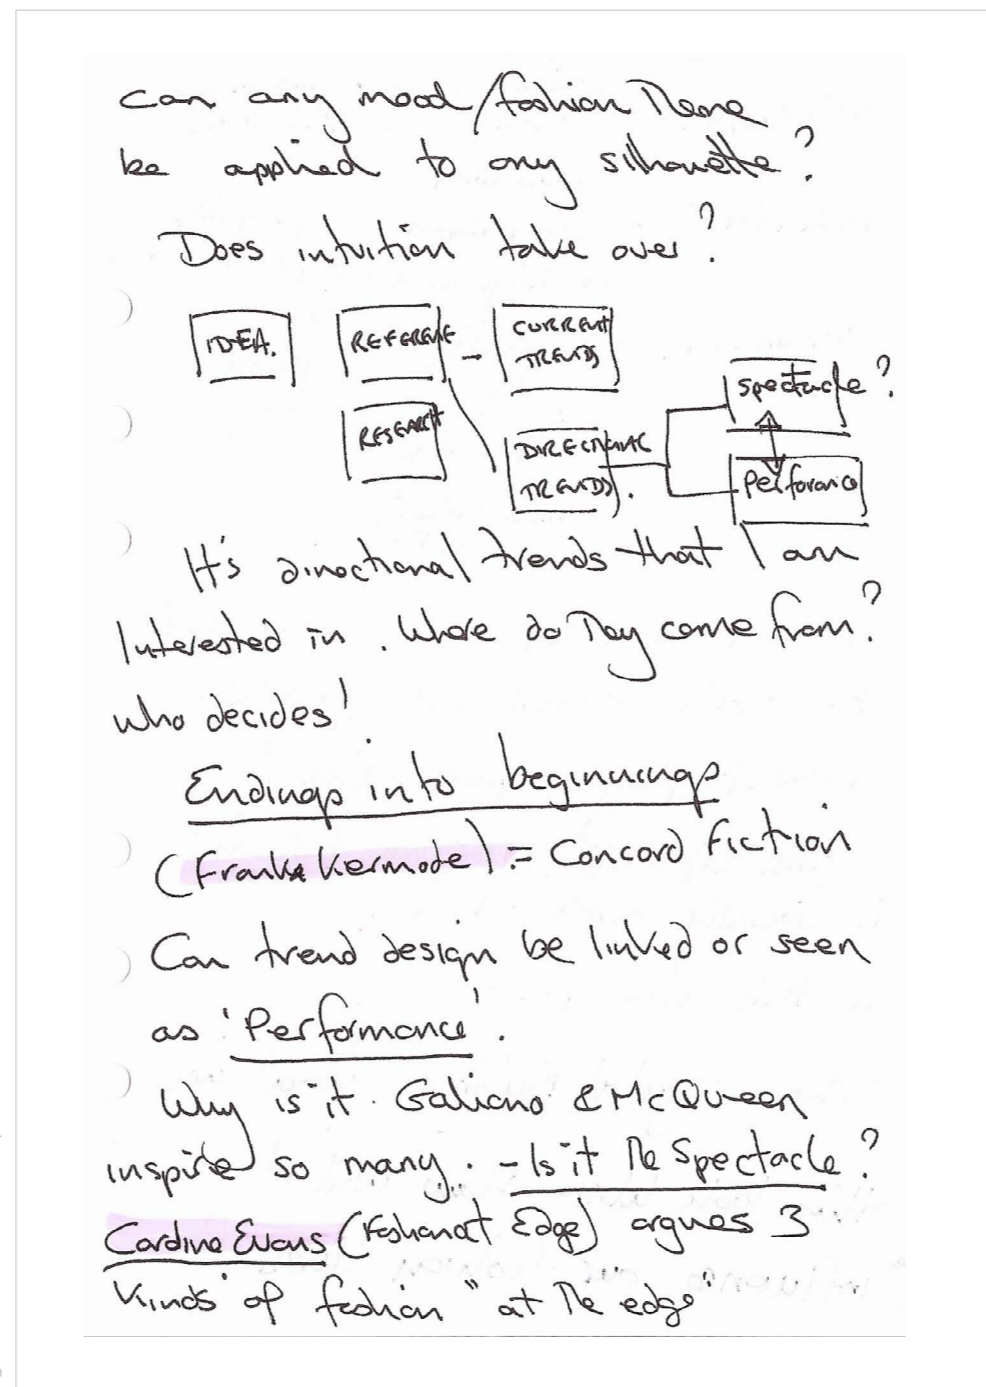 Can any mood/fashion Theme
be applied to any silhouette?
Does intuition take over?
IDEA.
REFERENCE
-
CURRENT
TRENDS
RESEARCH
DIRECTIONAL
TRENDS.
Spectacle?
Performance
It's directional trends that I am
Interested in. Where do They come from?
who decides!
Endings into beginnings
(Frank Kermode) = Concord Fiction
Can trend design be linked or seen
as 'Performance'.
Why is it. Galiano & McQueen
inspire so many. - Is it The Spectacle?
Caroline Evans (Fashion at Edge) argues 3
Kinds of fashion "at The edge"